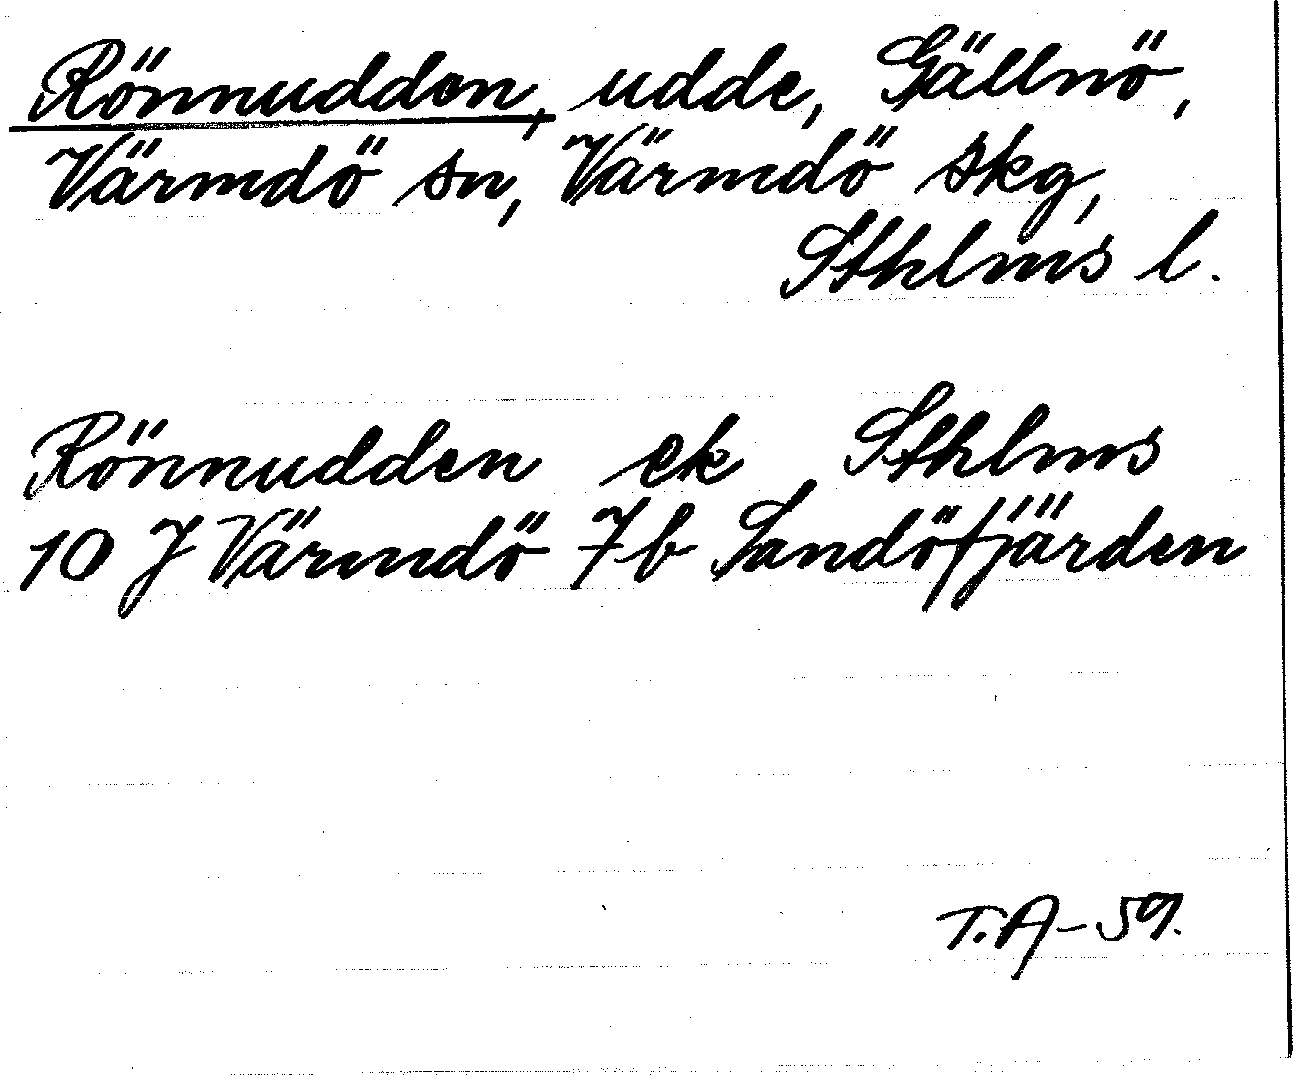 Rönnudden, udde, Gällnö,
Värmdö sn, Värmdö skg,
Sthlms l.
Rönnudden ek Sthlms
10 J Värmdö 7b Sandöfjärden
T.A-59.